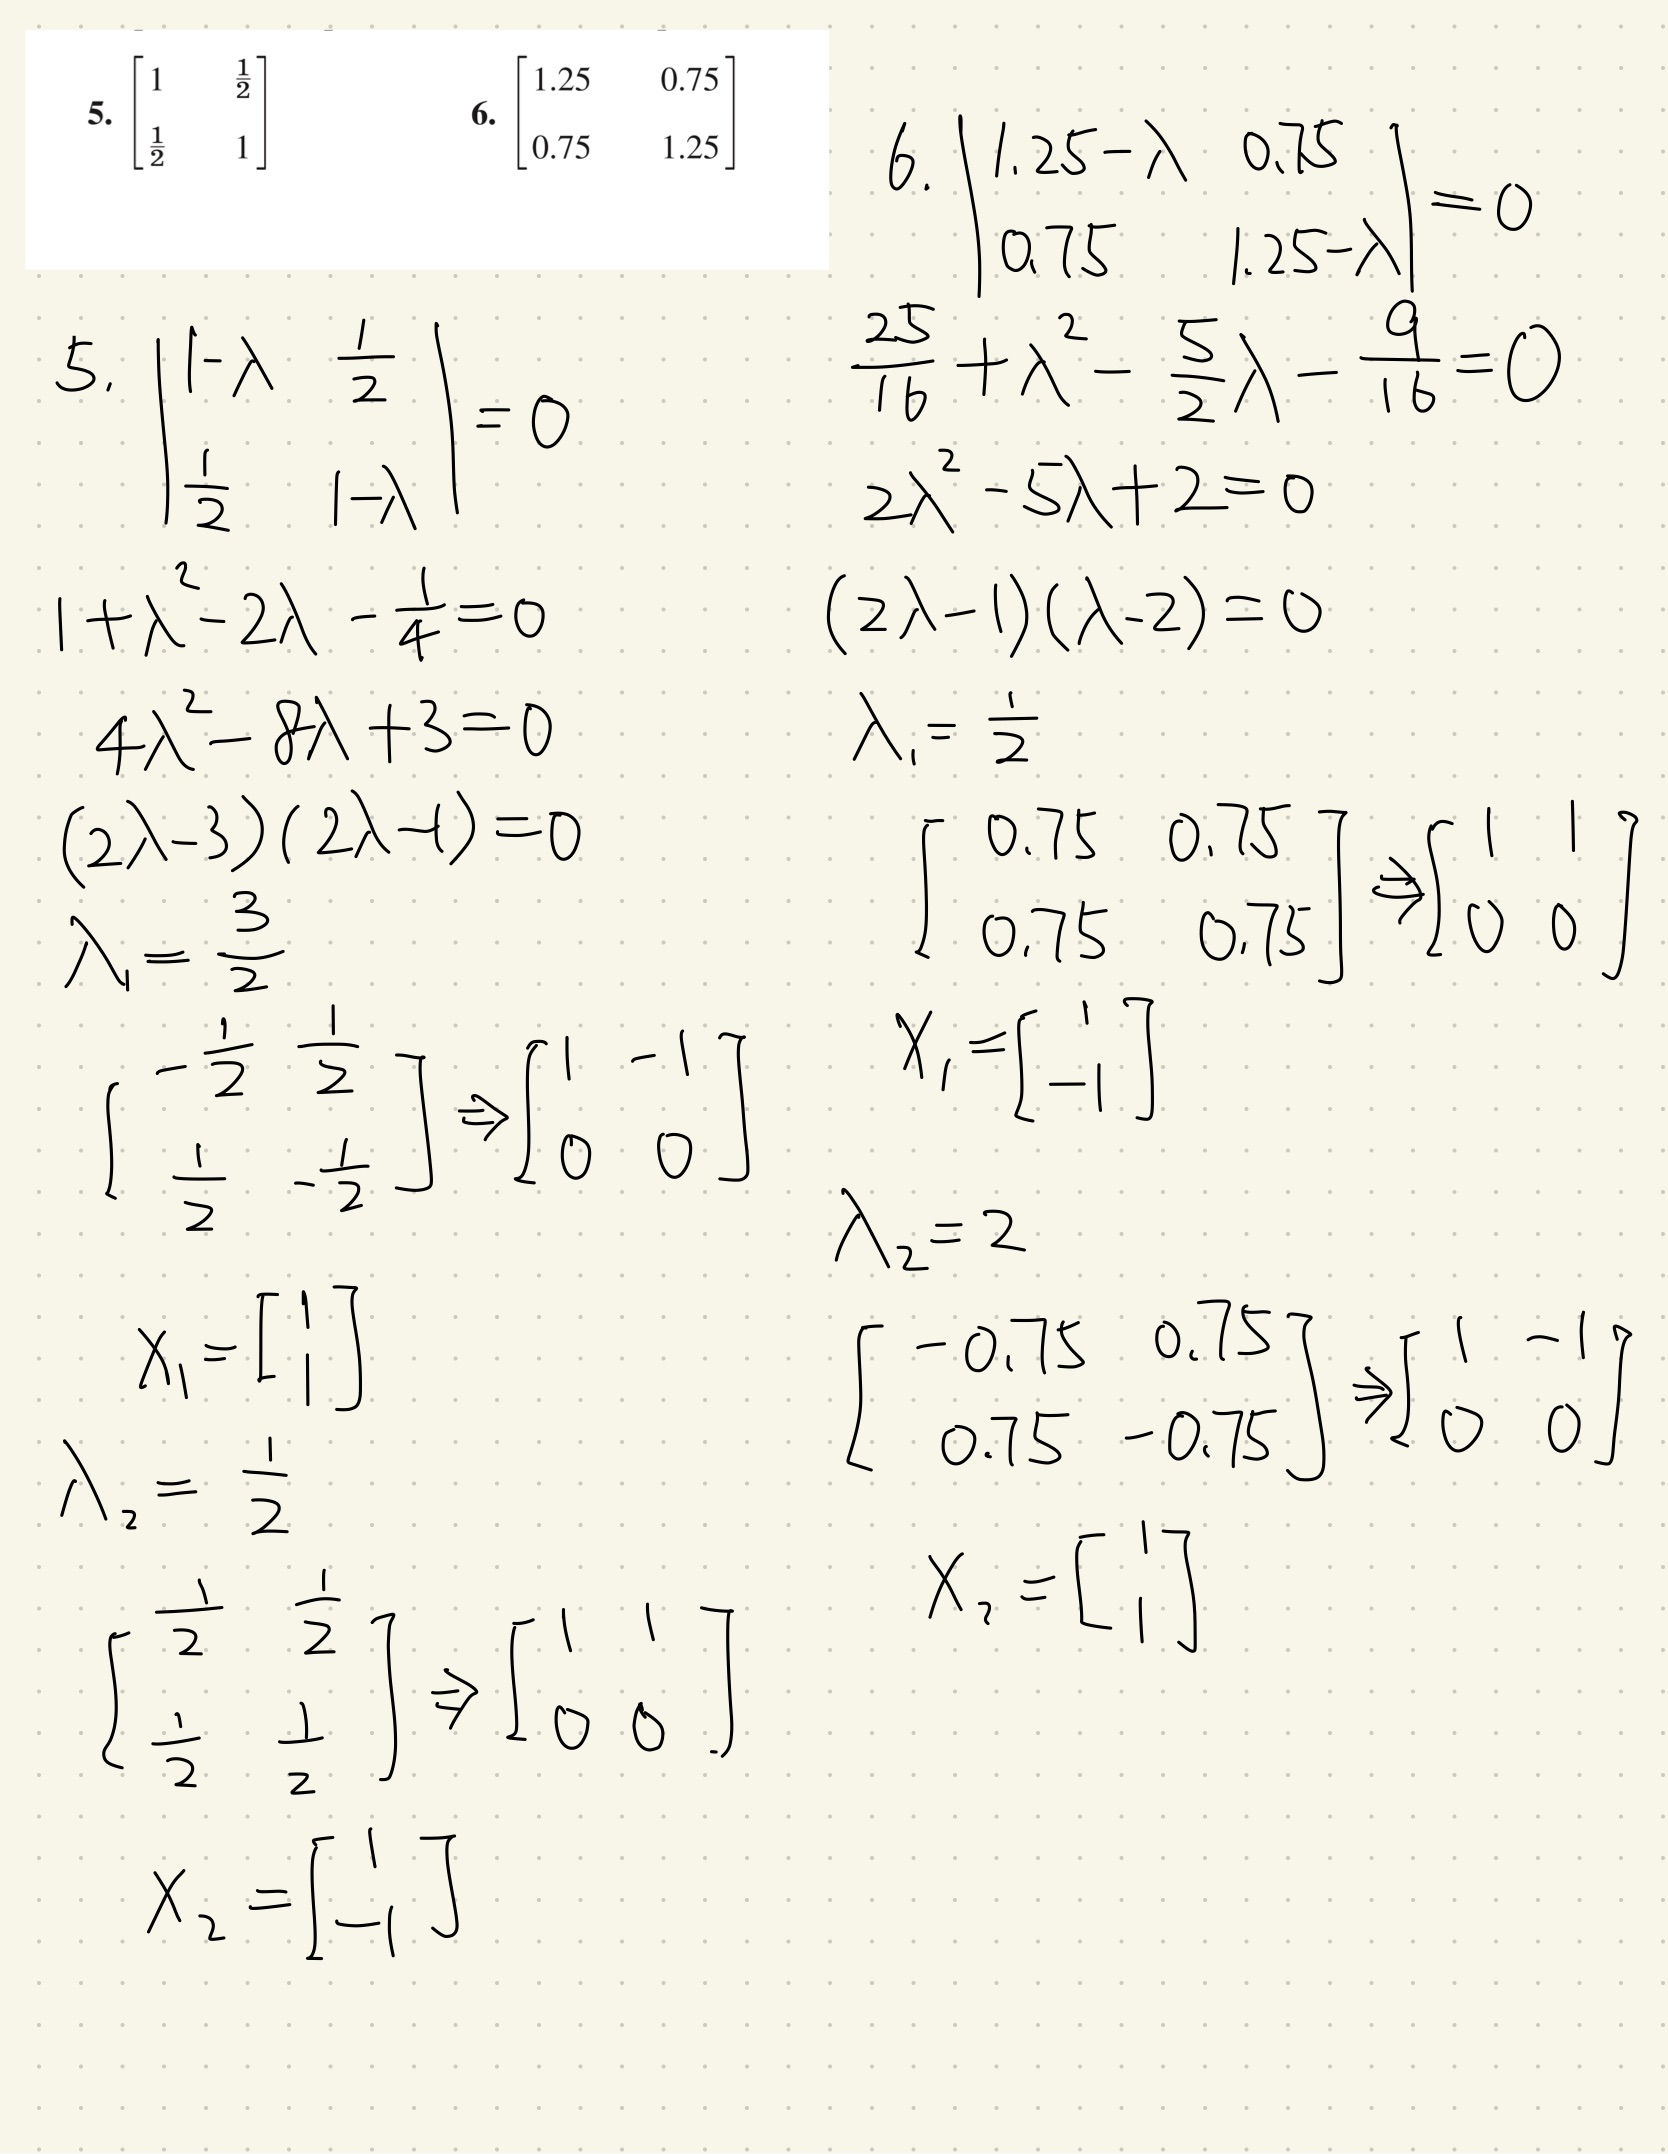 5. [1 1/2
1/2 1]
6. [1.25 0.75
0.75 1.25]
5. |1-λ 1/2
1/2 1-λ| = 0
1+λ²-2λ-1/4=0
4λ²-8λ+3=0
(2λ-3)(2λ-1)=0
λ₁=3/2
[-1/2 1/2
1/2 -1/2] ⇒ [1 -1
0 0]
x₁=[1
1]
λ₂=1/2
[1/2 1/2
1/2 1/2] ⇒ [1 1
0 0]
x₂=[1
-1]
6. |1.25-λ 0.75
0.75 1.25-λ| = 0
25/16+λ²-5/2λ-9/16=0
2λ²-5λ+2=0
(2λ-1)(λ-2)=0
λ₁=1/2
[0.75 0.75
0.75 0.75] ⇒ [1 1
0 0]
x₁=[1
-1]
λ₂=2
[-0.75 0.75
0.75 -0.75] ⇒ [1 -1
0 0]
x₂=[1
1]